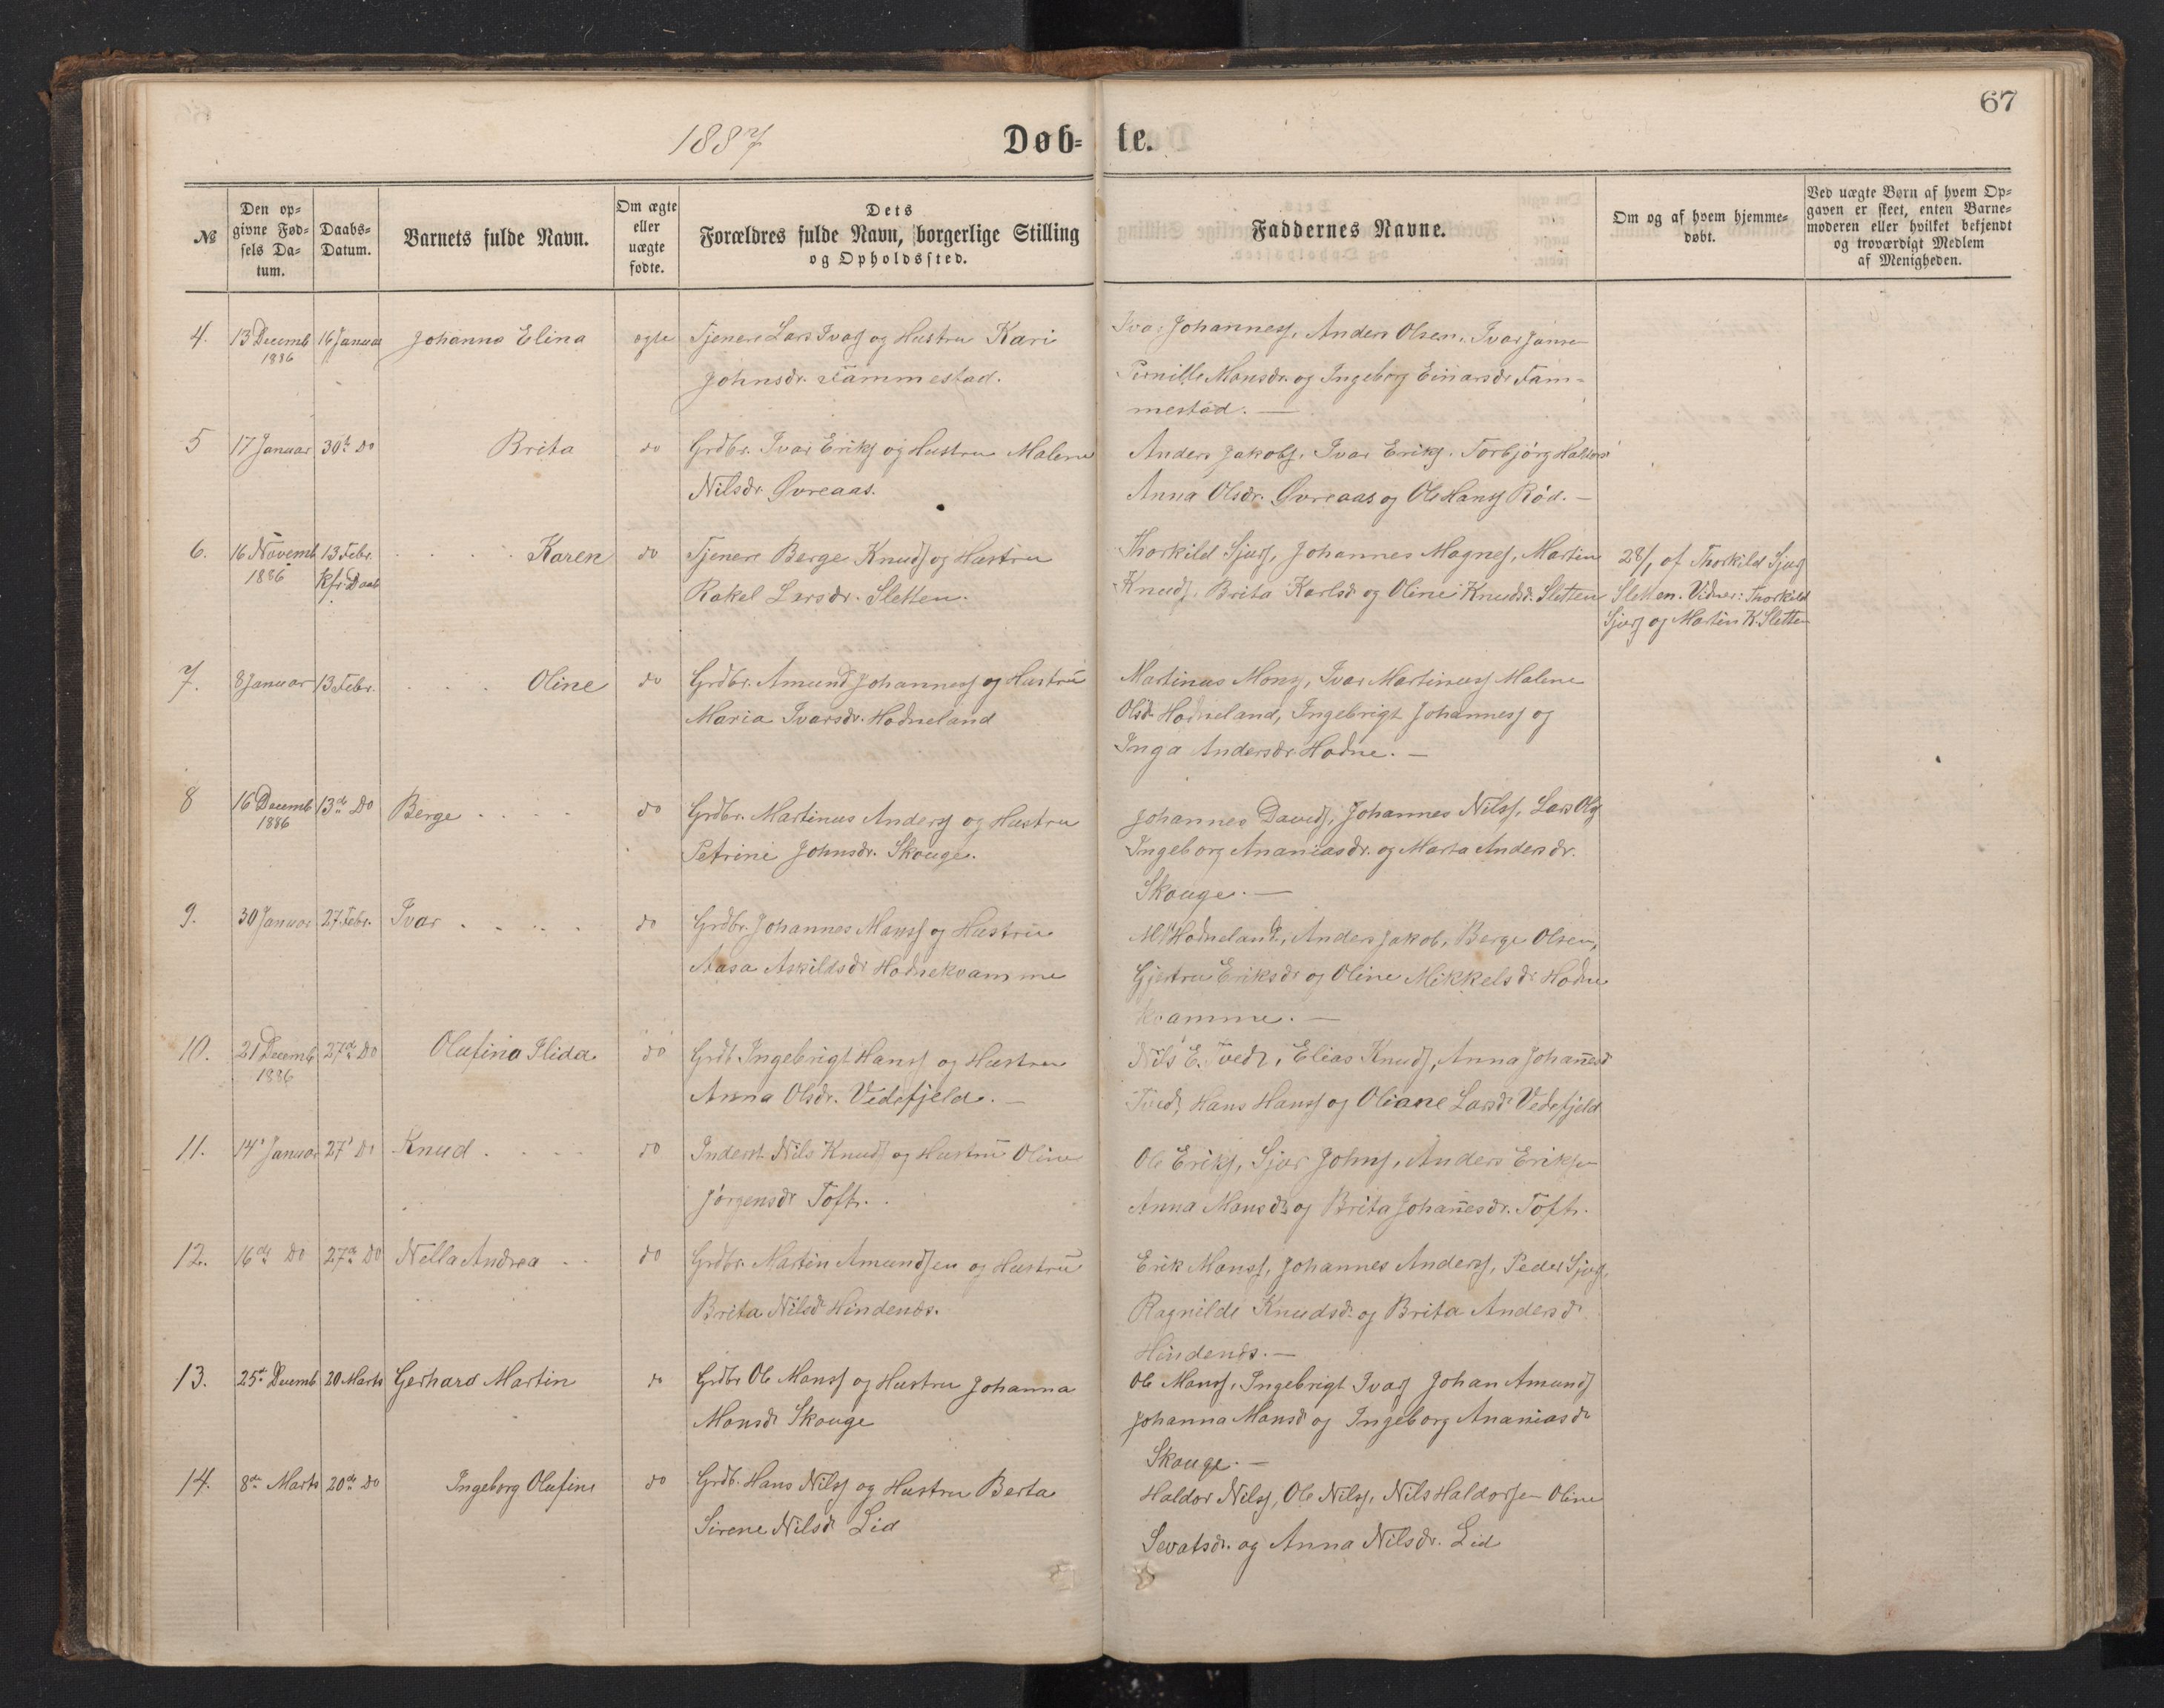 67
1887
Døb= te.
№
Den op=
givne Fød=
sels Da=
tum.
Daabs=
Datum.
Barnets fulde Navn.
Om ægte
eller
uægte
fødte.
Dets
Forældres fulde Navn, borgerlige Stilling
og Opholdssted.
Faddernes Navne.
Om og af hvem hjemme=
døbt.
Ved uægte Børn af hvem Op=
gaven er skeet, enten Barne=
moderen eller hvilket bekjendt
og troværdigt Medlem
af Menigheden.
4. 13 Decemb 16 Januar Johanna Elina ægte Tjener Lars Ivars og Hustru Kari Johanness, Anders Olsen, Ivar Jansen
1886 Johnsdr. Tammestad. Pernille Monsdr. og Ingeborg Einarsdr Tam=
mestad. —
5 17 Januar 30te Do Brita do Grdbr. Ivar Eriks og Hustru Malene Anders Jakobs, Ivar Eriks, Torbjørg Haldors
Nilsdr. Øvreaas. Anna Olsdr. Øvreaas og Ole Hanss Rød. —
6. 16 Novemb 13 Febr. Karen do Tjener Berge Knuds og Hustru Thorkild Sjurs, Johannes Magnes, Martin 28/1 af Thorkild Sjurs
1886 Kfr. Daab Rakel Larsdr. Sletten. Knuds, Brita Karlsd og Oline Knudsd. Sletten Sletten. Vidner: Thorkild
Sjurs og Martin K. Sletten
7. 8 Januar 13 Febr. Oline do Grdbr. Amund Johanness og Hustru Martinus Mons, Ivar Martinuss Malene
Maria Ivarsdr. Hodneland Olsdr Hodneland, Ingebrigt Johanness og
Inga Andersdr. Hodne. —
8 16 Decemb 13de Do Berge do Grdbr. Martinus Anders og Hustru Johannes Davids, Johannes Nilss, Lars Ols
1886 Petrine Johnsdr. Skouge. Ingeborg Ananiasdr. og Marta Andersdr.
Skouge. —
9. 30 Januar 27 Febr. Ivar do Grdbr. Johannes Monss og Hustru Hodneland, Anders Jakob, Berge Olsen,
Aasa Askildsdr Hodnekvamme Gjertru Eriksdr og Oline Mikkelsdr Hodne
kvamme. —
10. 21 Decemb 27de Do Olufina Ilida do Grdb. Ingebrigt Hanss og Hustru Nils E. Tvedt, Elias Knuds, Anna Johannesd
1886 Anna Olsdr. Vedefjeld. — Tvedt, Hans Hanss og Oliane Larsdr Vedefjeld
11. 14' Januar 27' Do Knud do Inderst Nils Knuds og Hustru Oline Ole Eriks, Sjur Johns, Anders Eriksen
Jørgensdr Toft. Anna Monsdr og Brita Johannesdr. Toft.
12. 16de Do 27de Do Nella Andrea do Grdbr. Martin Amundsen og Hustru Erik Monss, Johannes Anders, Peder Sjurs,
Brita Nilsdr Hindenes. Ragnilde Knudsdr og Brita Andersdr
Hindenes. —
13. 25de Decemb 20 Marts Gerhard Martin do Grdbr Ole Monss og Hustru Johanna Ole Monss, Ingebrigt Ivars Johan Amunds
Monsdr Skouge Johanna Monsdr og Ingeborg Ananiasdr
Skouge. —
14. 8de Marts 20de Do Ingeborg Olufine do Grdb. Hans Nilss og Hustru Berta Haldor Nilss, Ole Nilss, Nils Haldorsen Oline
Sirene Nilsdr Lid Sevatsdr. og Anna Nilsdr. Lid